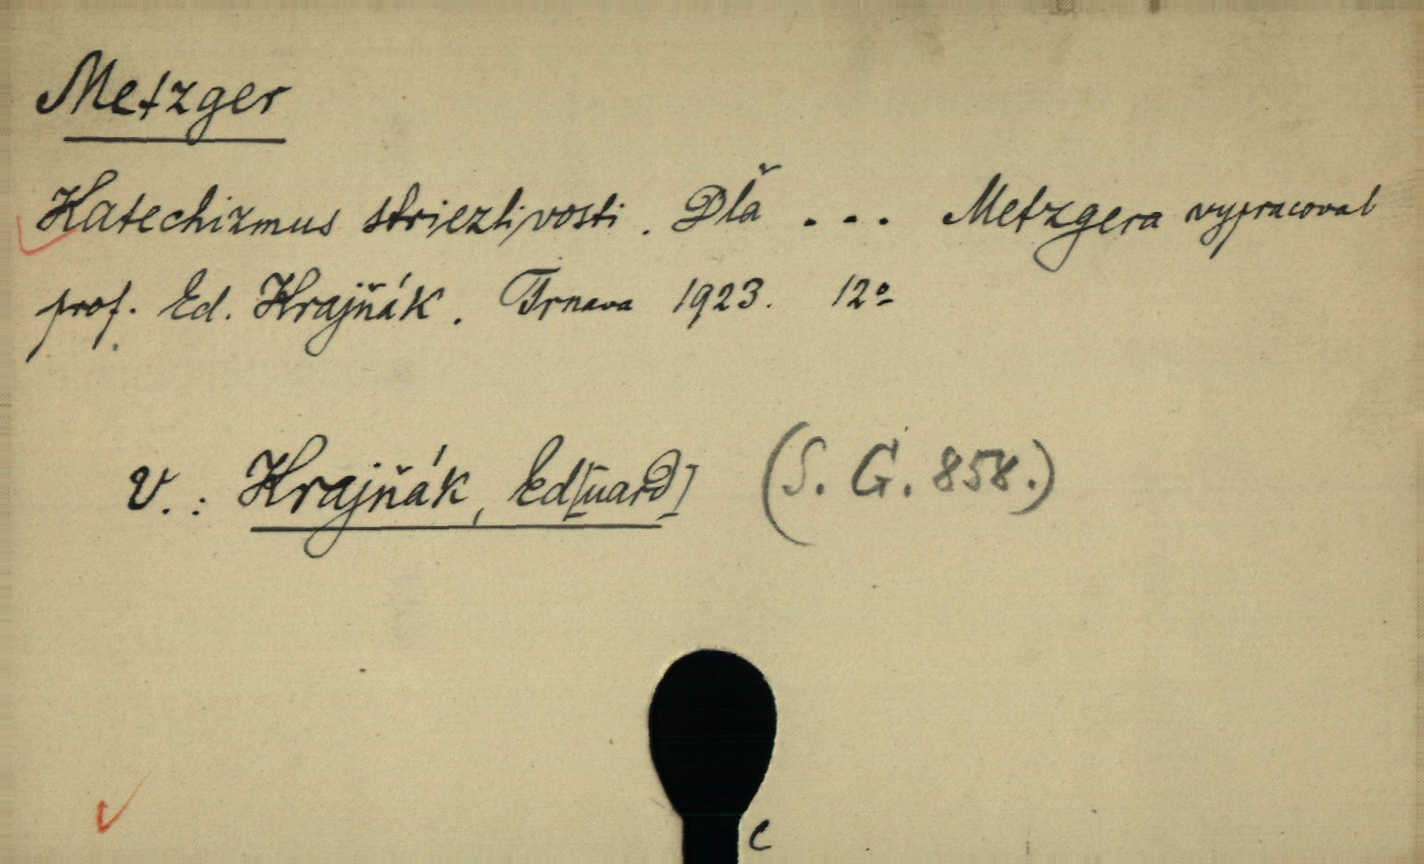 Metzger
Katechizmus striezlivosti. Dľa ... Metzgera vypracoval
prof. Ed. Krajňák. Trnava 1923. 12º
V.: Krajňák, Ed[uard] (S. G. 858.)
c